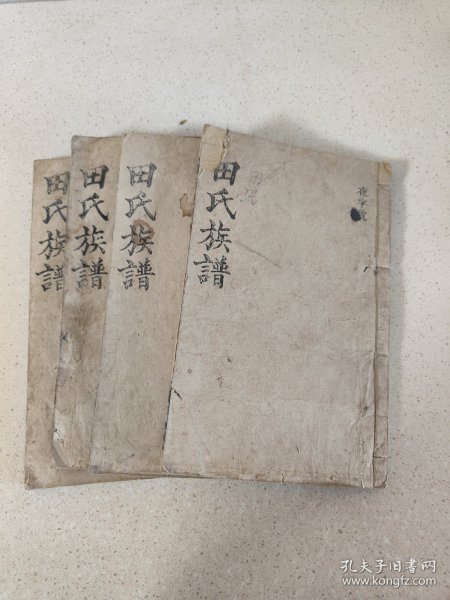 田氏族譜
田氏族譜
田氏族譜
田氏族譜
孔夫子旧书网
www.kongfz.com